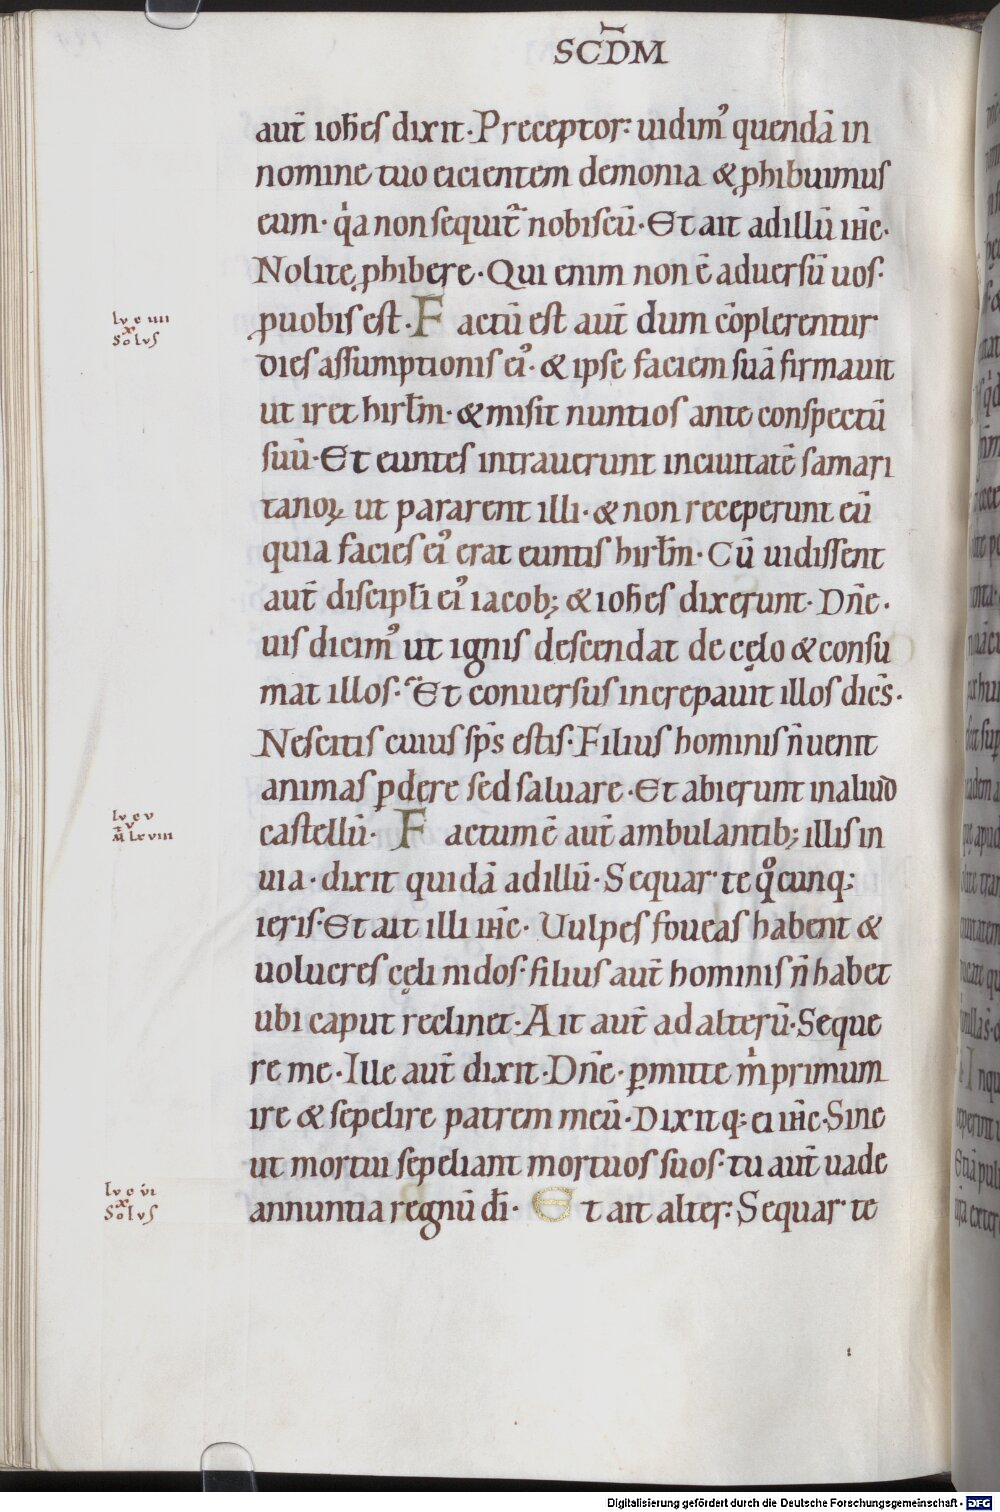 SCD̄M
aut̄ ioh̄es dixit. Preceptor: uidim᾽ quendā in
nomine tuo eicientem demonia & ꝓhibuimus
eum. qͥa non sequit᷑ nobiscū. Et ait ad illū ih̄c.
Nolite ꝓhibere. Qui enim non ē aduersū uos.
ꝓuobis est. Factū est aut̄ dum cōplerentur
dies assumptionis ei᾽. & ipse faciem suā firmauit
ut iret hirl̄m. & misit nuntios ante conspectū
suū. Et euntes intrauerunt in ciuitatē samari
tanoꝝ ut pararent illi. & non receperunt eū
quia facies ei᾽ erat euntis hirl̄m. Cū uidissent
aut̄ discipl̄i ei᾽ iacob; & ioh̄es dixerunt. Dn̄e.
uis dicim᾽ ut ignis descendat de cęlo & consu
mat illos. Et conuersus increpauit illos dic̄s.
Nescitis cuius sp̄s estis. Filius hominis n̄ uenit
animas ꝑdere sed saluare. Et abierunt in aliud
castellū. Factum ē aut̄ ambulantib; illis in
uia. dixit quidā ad illū. Sequar te qͦcunq;
ieris. Et ait illi ih̄c. Uulpes foueas habent &
uolucres cęli nidos. filius aut̄ hominis n̄ habet
ubi caput reclinet. Ait aut̄ ad alterū. Seque
re me. Ille aut̄ dixit. Dn̄e. ꝑmitte mͥ primum
ire & sepelire patrem meū. Dixitq; ei ih̄c. Sine
ut mortui sepeliant mortuos suos. tu aut̄ uade
annuntia regnū dī. Et ait alter: Sequar te
lv c iiii
x
Solvs
lv c v
iv
M lxviii
lv c vi
x
Solvs
Digitalisierung gefördert durch die Deutsche Forschungsgemeinschaft - DFG